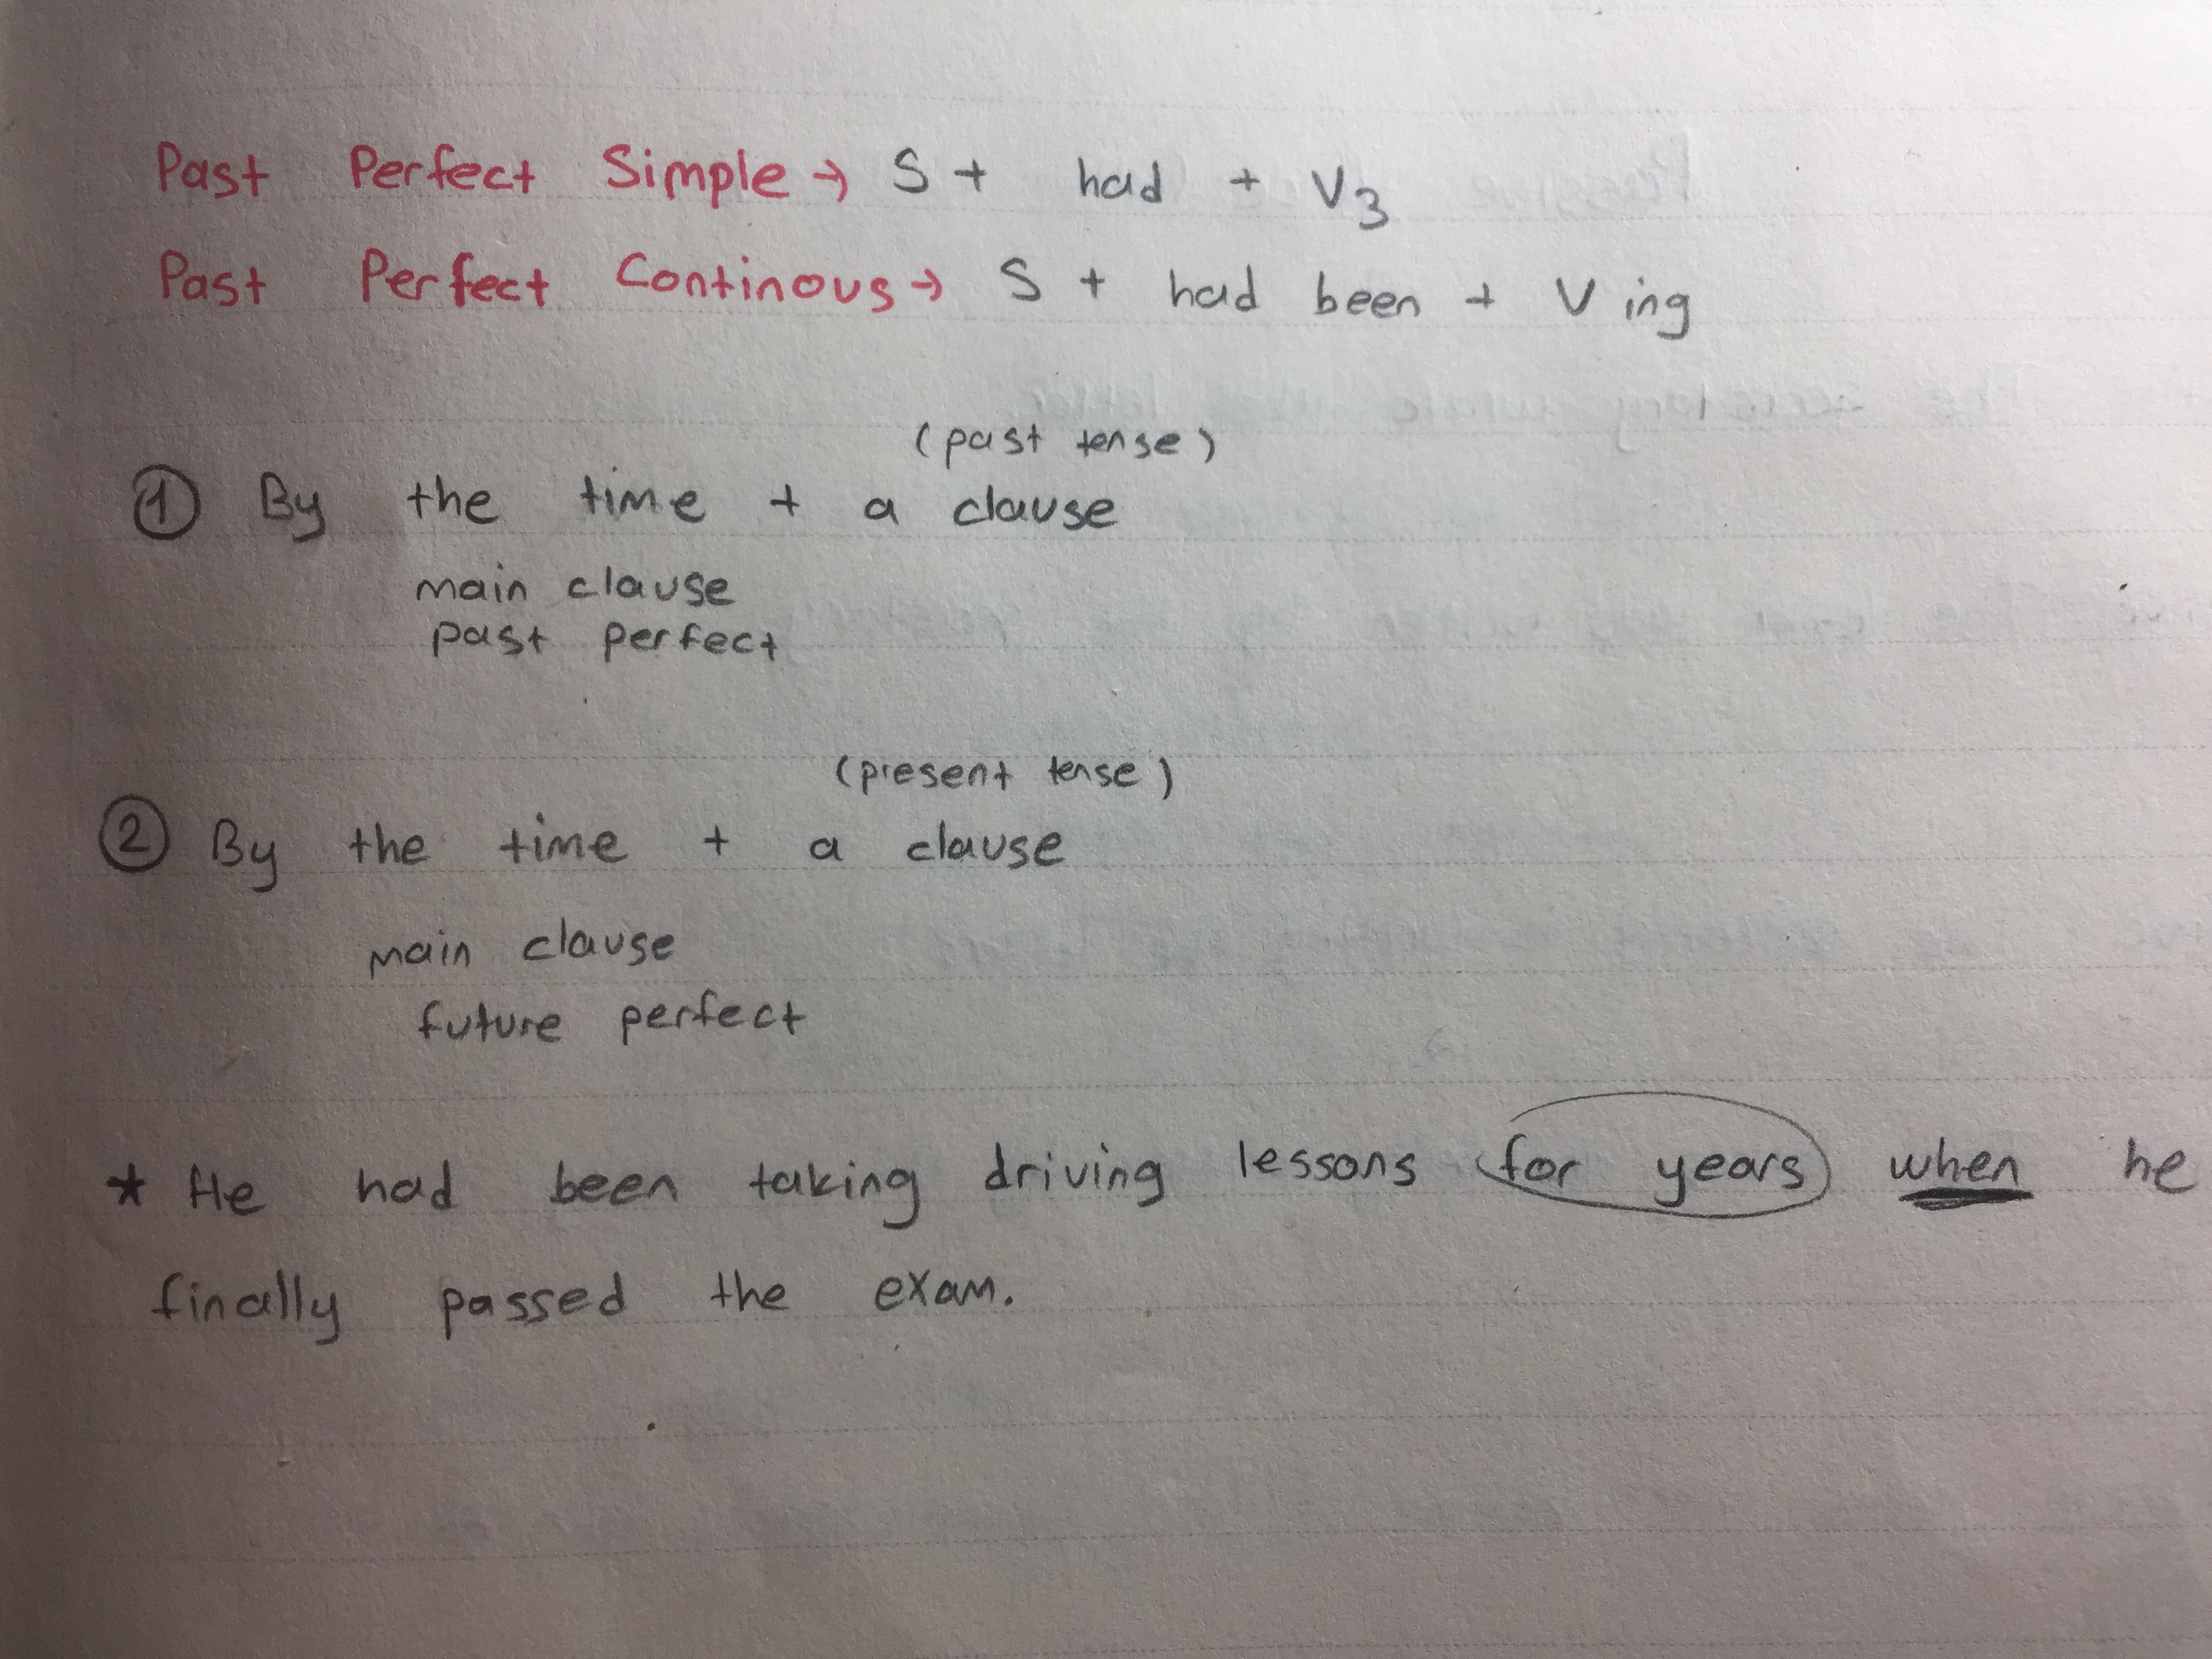 Past Perfect Simple → S + had + V3
Past Perfect Continous → S + had been + V ing
(past tense)
① By the time + a clause
main clause
past perfect
(present tense)
② By the time + a clause
main clause
future perfect
* He had been taking driving lessons for years when he
finally passed the exam.